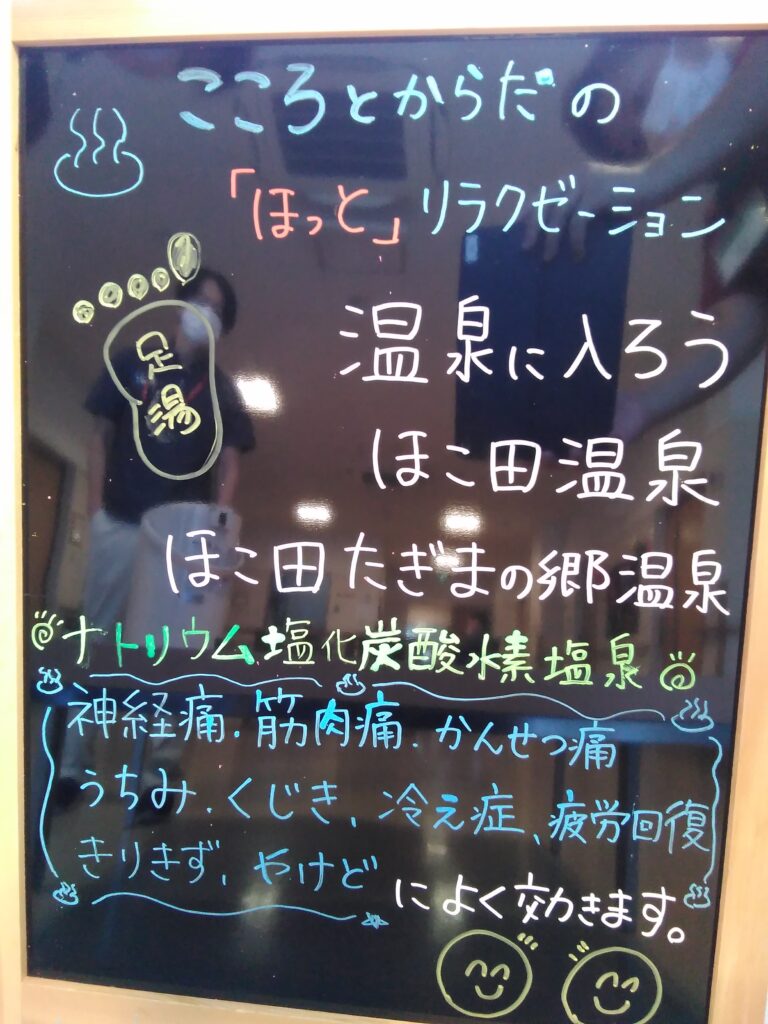 こころとからだの
「ほっと」リラクゼーション
足湯
温泉に入ろう
ほこ田温泉
ほこ田たぎまの郷温泉
ナトリウム塩化炭酸水素塩泉
神経痛.筋肉痛.かんせつ痛
うちみ.くじき、冷え症、疲労回復
きりきず、やけど
によく効きます。